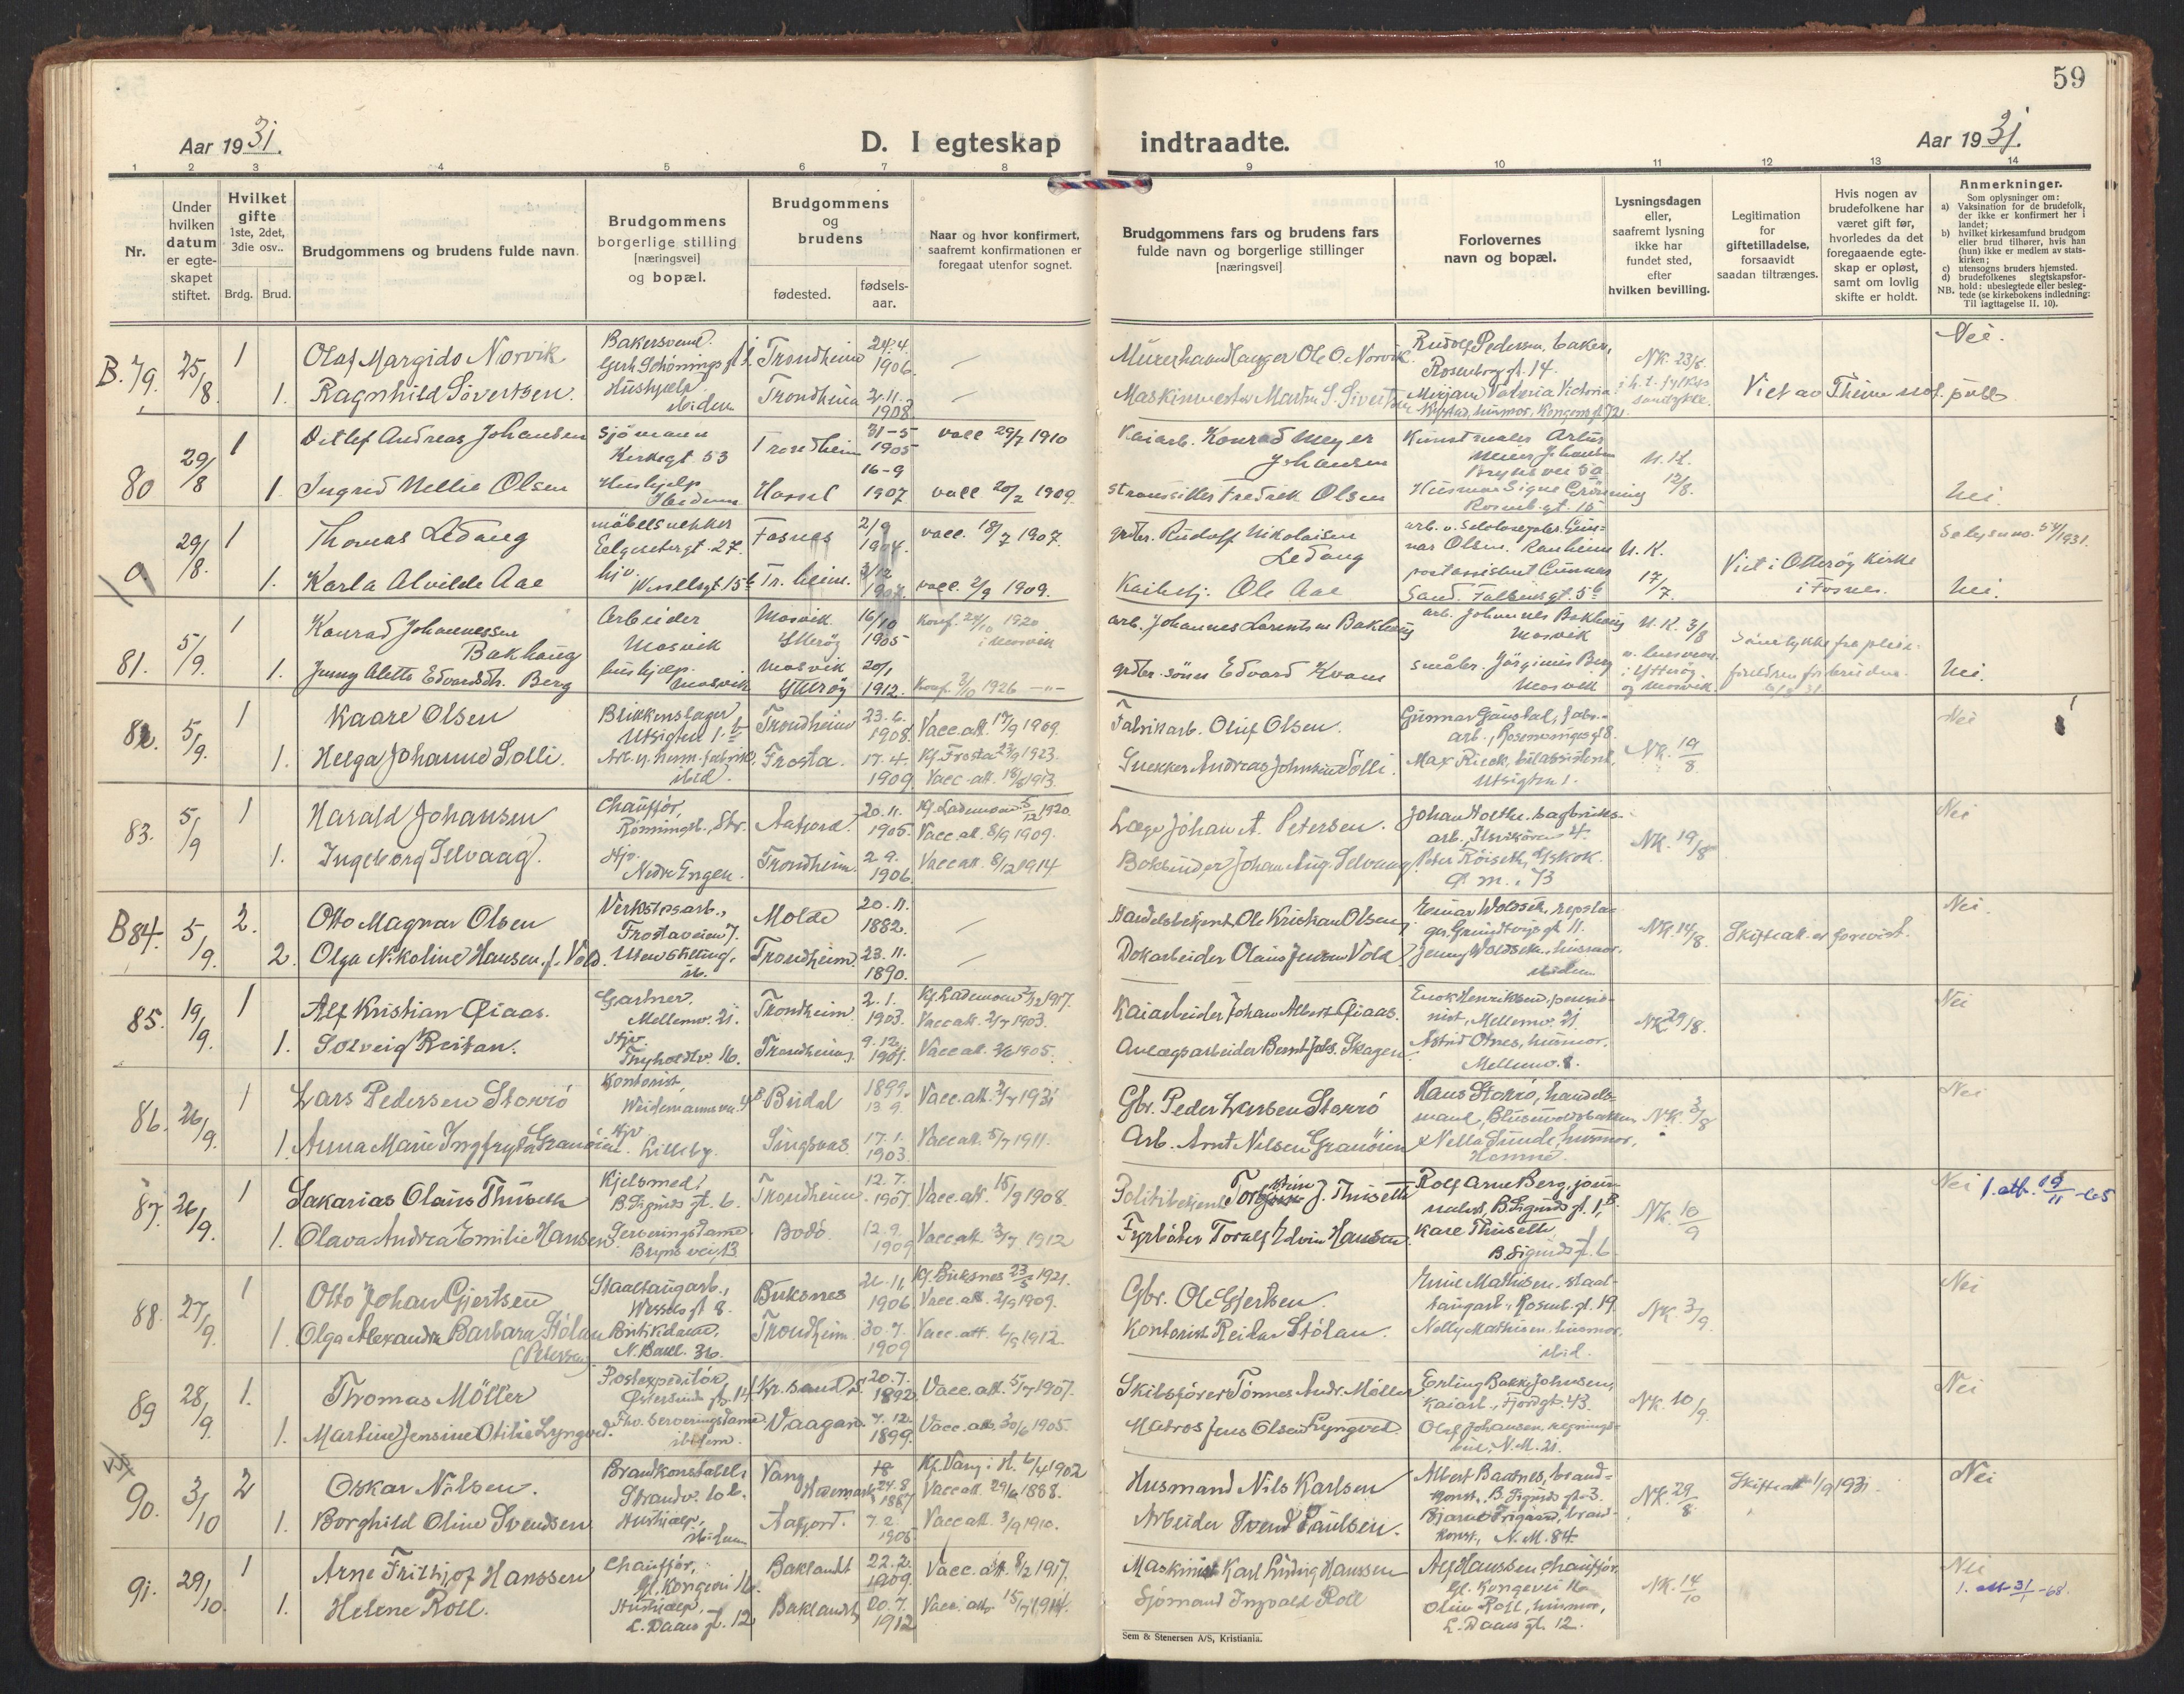 59
Aar 1931.
D. I egteskap
indtraadte.
Aar 1931.
1 2 3 4 5 6 7 8 9 10 11 12 13 14
Nr.
Under hvilken datum er egte-skapet stiftet.
Hvilket gifte 1ste, 2det, 3die osv..
Brdg. Brud.
Brudgommens og brudens fulde navn.
Brudgommens borgerlige stilling [næringsvei] og bopæl.
Brudgommens og brudens
fødested.
fødsels-aar.
Naar og hvor konfirmert, saafremt konfirmationen er foregaat utenfor sognet.
Brudgommens fars og brudens fars fulde navn og borgerlige stillinger [næringsvei]
Forlovernes navn og bopæl.
Lysningsdagen eller, saafremt lysning ikke har fundet sted, efter hvilken bevilling.
Legitimation for giftetilladelse, forsaavidt saadan tiltrænges.
Hvis nogen av brudefolkene har været gift før, hvorledes da det foregaaende egte-skap er opløst, samt om lovlig skifte er holdt.
Anmerkninger.
Som oplysninger om:
a) Vaksination for de brudefolk, der ikke er konfirmert her i landet;
b) hvilket kirkesamfund brudgom eller brud tilhører, hvis han (hun) ikke er medlem av stats-kirken;
c) utensogns bruders hjemsted.
d) brudefolkenes slegtskapsfor-hold: ubeslegtede eller besleg-tede (se kirkebokens indledning: Til iagttagelse II, 10).
NB.
B. 79. 25/8 1 Olaf Margido Norvik Bakersvend. Gerh. Schönings gt. Trondheim 24.4. 1906. Murerhaandlanger Ole O. Norvik. Rudolf Pedersen, baker, Rosenborg gt. 14. NK. 23/8. Nei.
1. Ragnhild Sivertsen. Hushjælp ibidem Trondheim 2.11. 1908. Maskinmester Martin S. Sivertsen Mirjam Valeria Victoria Viet av Thime not. publ.
80 29/8 1 Detlef Andreas Johansen Sjömann Kirkegt 53 Trondheim 31-5 1905 vacc 29/7 1910 Kaiarb. Konrad Meyer Johansen Kunstmaler Artur Meier Johansen Bryns vei 5a N.K. 12/8.
1. Ingrid Nellie Olsen Hushjelp Ibidem Hassel 16-9 1907 vacc 20/2 1909. Fredrik Olsen Husmor Signe Grönning Rosenb. gt. 15 Nei.
0. 29/8. 1 Thomas Ledang möbelsnekker Eelgesetergt. 27. Fosnes 2/9 1904. vacc. 18/7 1907. grdbr. Rudolf Nikolaisen Ledang Olsen. Ranheim N.K. 17/7. Viet i Otterøy Kirke i Fosnes. 54/1931.
1. Karla Alvilde Aae hjv. Wessellsgt 15b Tr.heim. 3/12 vacc. 2/9 1909. Kaibetj. Ole Aae postassistent Gunnar Sand. gt. 5b Nei.
81. 5/9. 1 Konrad Johannessen Bakhaug Arbeider Mosvik Mosvik Ytterøy 16/10 1905 Konf. 24/10 1920 i Mosvik arb. Johannes Larentsen Bakhaug arb. Johannes Bakhaug Mosvik N.K. 3/8
1. Jenny Alette Edvardsdtr. Berg hushjelp. Mosvik Mosvik Ytterøy 20/1 1912. Konf. 3/10 1926 —"— grdbr. sönn Edvard Kvam småbr. Jörginus Berg Mosvik i Ytterøy og Mosvik. Nei.
82. 5/9. 1 Kaare Olsen Blikkenslager Utsigten 1.b Trondheim 23.6. 1908. Vacc. att. 17/9 1909. Fabrikarb. Oluf Olsen. Gunnar Gaustal, fabr.-arb., NK. 19/8. Nei
1. Helga Johanne Solli. Arb. v. herm. fabrik. ibid. Frosta. 17.4. 1909 Kf. Frosta 23/9 1923. Vacc. att. 18/8 1913. Snekker Andreas Johnsen Solli. Max Rieck, bilassistent, Utsigten 1.
83. 5/9 1 Harald Johansen Chauffør, Rønningsl., Str. Aafjord. 20.11. 1905. Kf. Lademoen 5/12 1920. Vacc. att. 8/9 1909. Læge Johan A. Petersen. Johan Holthe, sagbruks-arb., Ilsvikøren 4. NK. 19/8 Nei
1. Ingeborg Selvaag. Hjv. Nedre Engen. Trondheim. 2.9. 1906. Vacc att. 8/12 1914 Bokbinder Johan Aug. Selvaag. Peter Röiseth, Ø. M. 73
B 84. 5/9. 2. Otto Magnar Olsen Verkstedsarb., Frostaveien 7. Molde 20.11. 1882. Handelsbetjent Ole Kristian Olsen Einar Woldseth, repslager, Grundtvigs gt. 11. NK. 14/8. Skifteatt. er forevist. Nei
2. Olga Nikoline Hansen, f. Vold. Uten stilling, ib. Trondheim. 23.11. 1890. Dokarbeider Olaus Jensen Vold Jenny Woldseth, husmor. ibidem
85. 19/9. 1 Alf Kristian Qiaas. Gartner. Mellemv. 21. Trondheim. 2.1. 1903. Kf. Lademoen 1917. Vacc att. 2/7 1903. Kaiarbeider Johan Albert Qiaas. Enok Henriksen, pensio-nist, Mellemv. 21 NK. 29/8. Nei
1. Solveig Reitan. Hjv. Thyholtv. 16. Trondheim. 9.12. Vacc att. 2/6 1905. Anlægsarbeider Bernt Johs. Skagen Astrid Otnes, husmor. Mellemv. 8.
86. 26/9. 1 Lars Pedersen Storrö Kontorist, Weidemannsvei. 4b Budal 1899. 13.9. Vacc. att. 3/7 1931 Gbr. Peder Larsen Storrö Hans Storrö, handels-mand, NK. 3/8 Nei
1. Anna Marie Ingfryda Granöien. Hjv Lilleby. Singsaas. 17.1. 1903. Vacc att. 5/7 1911. Arb. Arnt Nilsen Granöien Nella Sunde, husmor, Hemne.
87. 26/9. 1 Sakarias Olaus Thuseth Kjelsmed, B. Sigurds gt. 6. Trondheim 12.7. 1907. Vacc. att. 15/9 1908. Politibetjent Torstein J. Thuseth Rolf Arne Berg, jour-nalist, B. Sigurds gt. 1.B. NK. 10/9 Nei 1. att. 19/11 -65
1. Olava Andrea Emilie Hansen Serveringsdame. Bryns vei, 13. Bodö. 12.9. 1909 Vacc att. 3/7 1912 Fyrböter Toralf Edvin Hansen. Kare Thuseth, B. Sigurds gt. 6
88. 27/9. 1 Otto Johan Gjertsen Staaltaugarb., Wessels gt 8. Buksnes 26.11. 1906 Kf. Buksnes 23/5 1921. Vacc. att. 2/9 1909. Gbr. Ole Gjertsen. Emil Mathisen, staal-taugarb., Rosenb. gt. 19. NK. 3/9. Nei
1. Olga Alexandra Barbara Stölan (Petersen) Butikdame, N. Bakl. 36. Trondheim. 30.7. 1909 Vacc. att. 6/9 1912. Kontorist Reidar Stölan. Nelly Mathisen, husmor. ibid.
89 28/9. 1. Thomas Möller Postexpeditör, Østersunds gt. 14 Kr. sand S. 20.7. 1892. Vacc. att. 5/7 1907. Skibsförer Tönnes Andr. Möller Erling Bakke Johnsen, kaiarb., Fjordgt. 43. NK. 10/9. Nei
1. Martine Jensine Otilie Lyngved. Fhv. Serveringsdame ibidem. Vaagan. 7.12. 1899. Vacc. att. 30/6 1905. Matros Jens Olsen Lyngved Olaf Johansen, N. M. 21.
90. 3/10 2 Oskar Nilsen. Brandkonstabel, Strandv. 10b. Vang Hedemark 24.8 1887 Kf. Vang i H. 6/4 1902 Vacc att. 29/6 1888. Husmand Nils Karlsen Albert Baatnes, brand-konst., B. Sigurds gt. 3. NK. 29/8. Skifteatt. 1/9 1931. Nei
1. Borghild Oline Svendsen Hushjælp, ibidem Aafjord. 7.2. 1905 Vacc att. 3/9 1910. Arbeider Svend Paulsen. Bjarne Frigaard, brand-konst., N. M. 84.
91. 29/10. 1 Arne Frithjof Hanssen Chauffør, Gl. Kongevei 16. Baklandt 22.2. 1909. Vacc. att. 8/2 1917. Maskinist Karl Ludvig Hanssen Alf Hanssen chauffør Gl. Kongevei 16 NK. 14/10 Nei 1. att 31/1 -68.
1. Helene Roll. Hushjælp, L. Daaes gt. 12 Baklandt 20.7. 1912 Vacc. att. 15/7 1914. Sjømand Ingvald Roll Oline Roll, husmor, L. Daaes gt. 12.
Sem & Stenersen A/S, Kristiania.